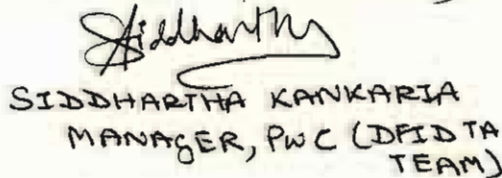 Siddhartha
SIDDHARTHA KANKARIA
MANAGER, PWC (DFID TA
TEAM)